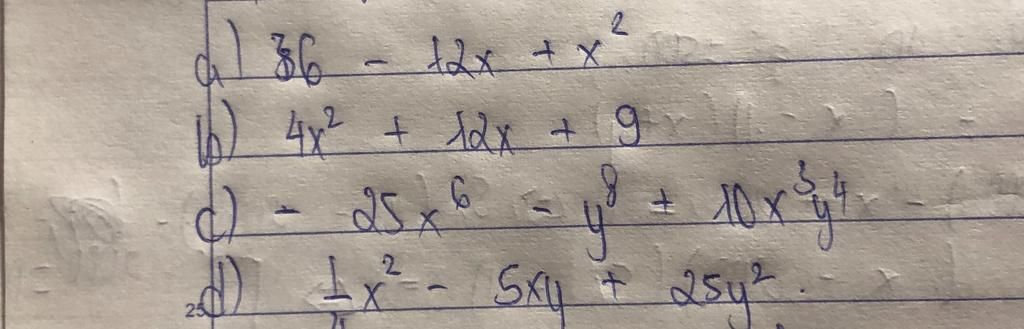 a) 36 - 12x + x²
b) 4x² + 12x + 9
c) - 25x⁶ - y⁸ + 10x³y⁴
d) 1/4 x² - 5xy + 25y².